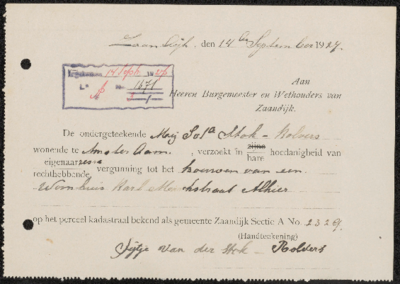 Zaandijk, den 14 den September 1927.
Ingekomen 14 Sept. 1927
L. A No. 1671
Aan
Heeren Burgemeester en Wethouders van
Zaandijk.
De ondergeteekende Mej
wonende te Amsterdam, verzoekt in zijne hoedanigheid van
hare
eigenaaresse
rechthebbende vergunning tot het bouwen van een
Woonhuis Karl Marxstraat Alhier
op het perceel kadastraal bekend als gemeente Zaandijk Sectie A No.
(Handteekening)
van der Stok - Rolvers